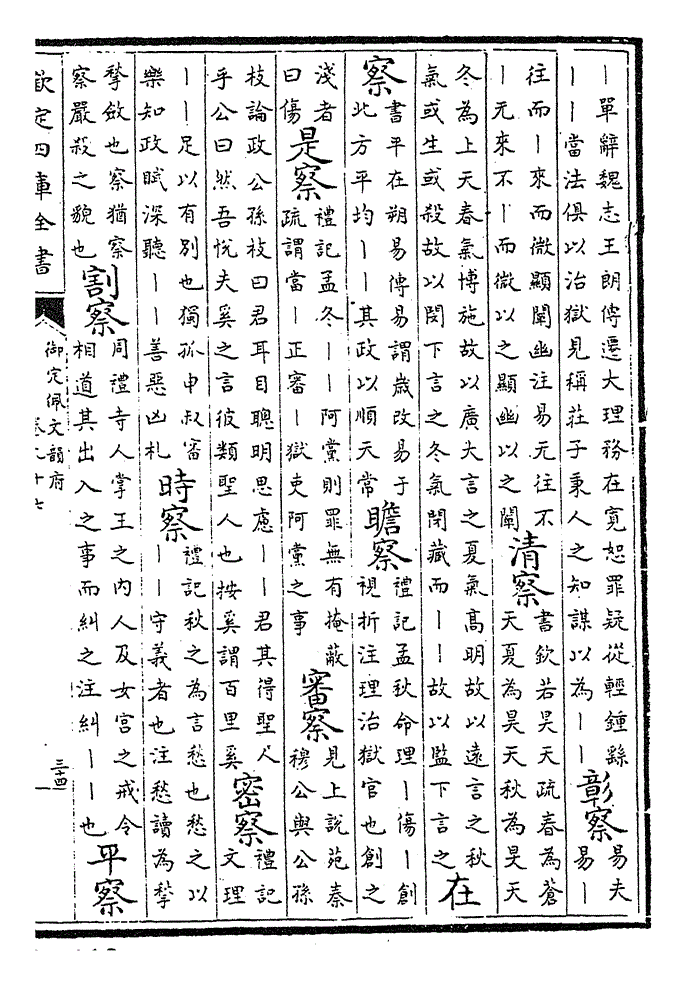 丨單辭魏志王朗傳遷大理務在寛恕罪疑從輕鍾繇
丨丨當法俱以治獄見稱莊子秉人之知謀以為丨丨
彰察
易夫
易丨
往而丨來而微顯闡幽注易无往不
丨无來不丨而微以之顯幽以之闡
清察
書欽若昊天疏春為蒼
天夏為昊天秋為旻天
冬為上天春氣博施故以廣大言之夏氣高明故以逺言之秋
氣或生或殺故以閔下言之冬氣閉藏而丨丨故以監下言之
在
察
書平在朔易傳易謂歳改易于
此方平均丨丨其政以順天常
瞻察
禮記孟秋命理丨傷丨創
視折注理治獄官也創之
淺者
曰傷
是察
禮記孟冬丨丨阿黨則罪無有掩蔽
疏謂當丨正審丨獄吏阿黨之事
審察
見上說苑秦
穆公與公孫
枝論政公孫枝曰君耳目聰明思慮丨丨君其得聖人
乎公曰然吾悅夫奚之言彼類聖人也按奚謂百里奚
密察
禮記
文理
丨丨足以有別也獨孤申叔審
樂知政賦深聽丨丨善惡凶札
時察
禮記秋之為言愁也愁之以
丨丨守義者也注愁讀為揫
揫斂也察猶察
察嚴殺之貌也
割察
周禮寺人掌王之内人及女宫之戒令
相道其出入之事而糾之注糾丨丨也
平察
欽定四庫全書
御定佩文韻府
卷九十七
三十四